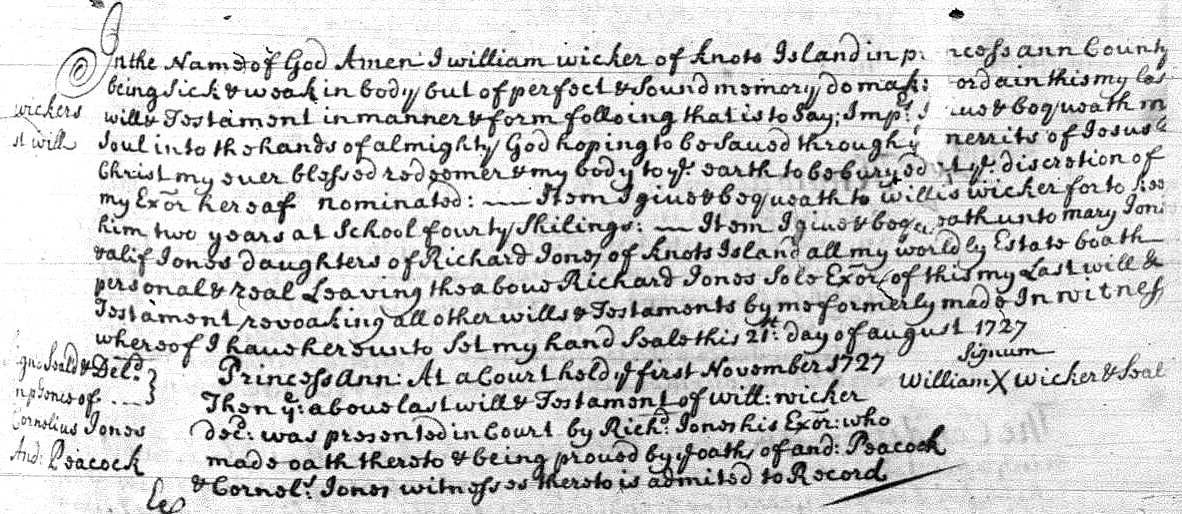 In the Name of God Amen I william wicker of Knots Island in p: ncess ann County
being Sick & weak in body but of perfect & Sound memory do make ordain this my las
wickers
will & Testament in manner & form folloing that is to Say; Impr. I ive & bequeath m
st will
Soul into the hands of almighty God hoping to be Saved through y merrits of Jesus
Christ my ever blessed redeemer & my body to ye. earth to be buryed at ye. discretion of
my Exor. hereaf nominated: — Item I give & bequeath to willis wicker for to kee
him two years at School fourty Shilings: — Item I give & bequeath unto mary Jon
& alif Jones daughters of Richard Jones of Knots Island all my worldly Estate boath
personal & real Leaving the above Richard Jones Sole Exor. of this my Last will &
Testament revoaking all other wills & Testaments by me formerly made In witness
whereof I have hereunto Set my hand Seale this 21st. day of august 1727
Signum
William X wicker & Seal
igne Seald & Deld.
n psence of ....
Cornelius Jones
And: Peacock
Princess Ann: At a Court held ye first November 1727
Then ye: above last will & Testament of will: wicker
decd: was presented in Court by Richd. Jones his Exor: who
made oath thereto & being proved by ye oaths of and: Peacock
& Cornels. Jones witnesses thereto is admited to Record